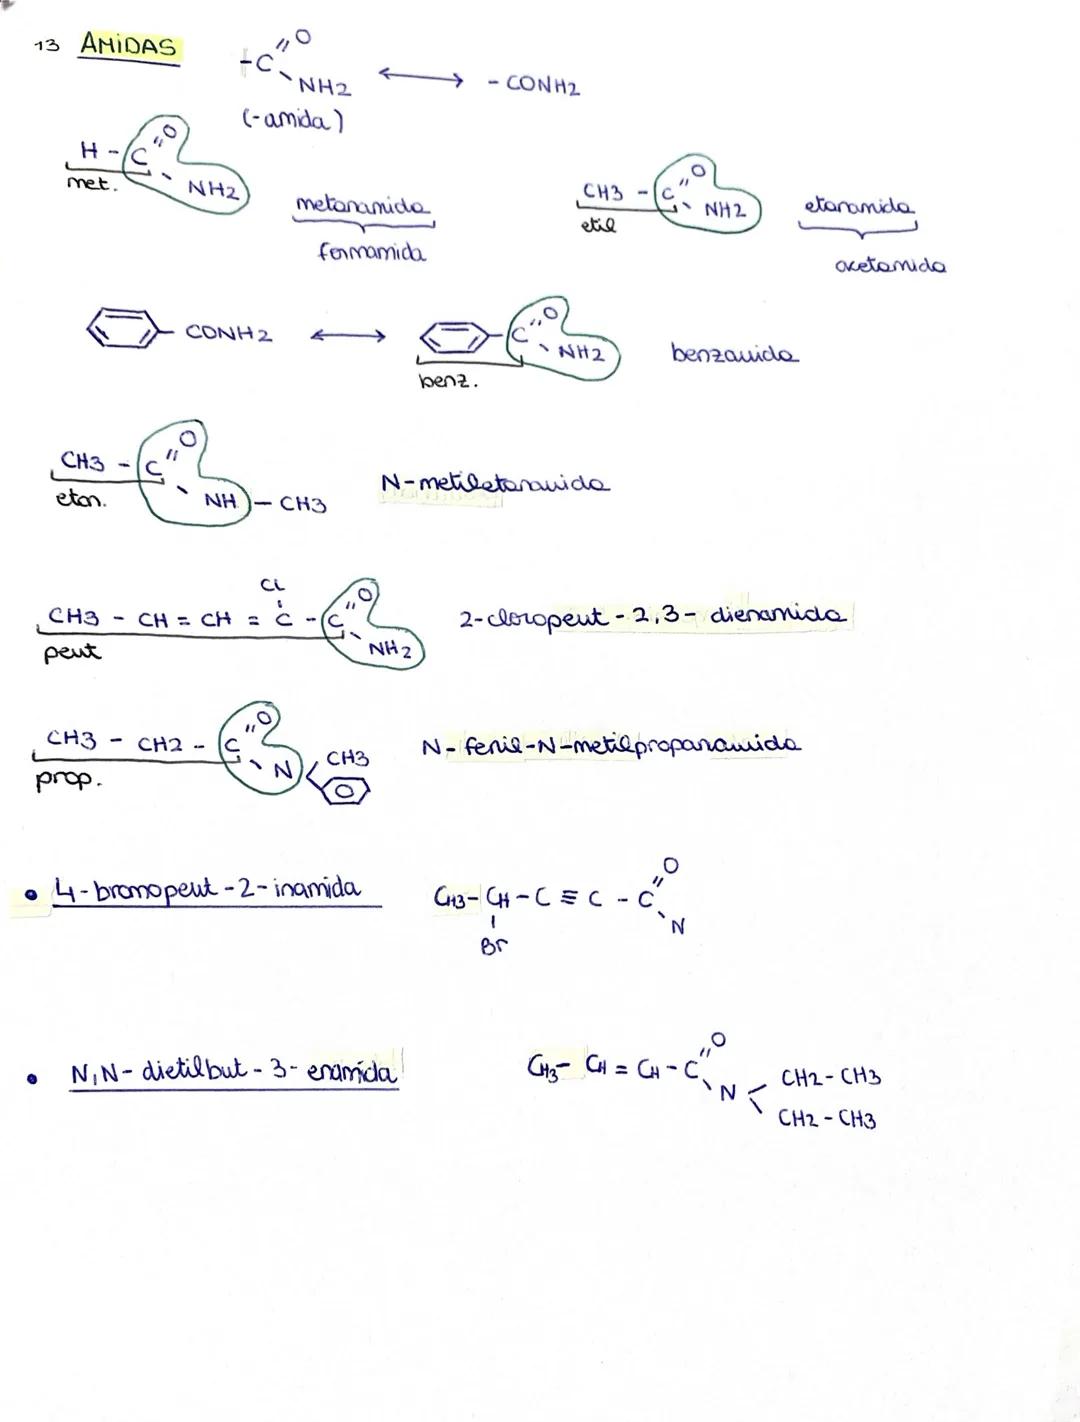 13 AMIDAS
-C=O NH2 ⟷ - CONH2
(-amida)
H - C=O NH2
met.
metanamida
formamida
CH3 - C=O NH2
etil
etanamida
acetamida
- CONH2 ⟷ - C=O NH2 benzamida
benz.
CH3 - C=O NH - CH3 N-metiletanamida
etan.
CH3 - CH = CH = C(Cl) - C=O NH2 2-cloropent - 2,3 - dienamida
pent
CH3 - CH2 - C=O N CH3 N- fenil-N-metilpropanamida
prop.
• 4-bromopent - 2 - inamida CH3 - CH - C ≡ C - C=O N
Br
• N,N- dietilbut - 3 - enamida CH3 - CH = CH - C=O N CH2 - CH3
CH2 - CH3